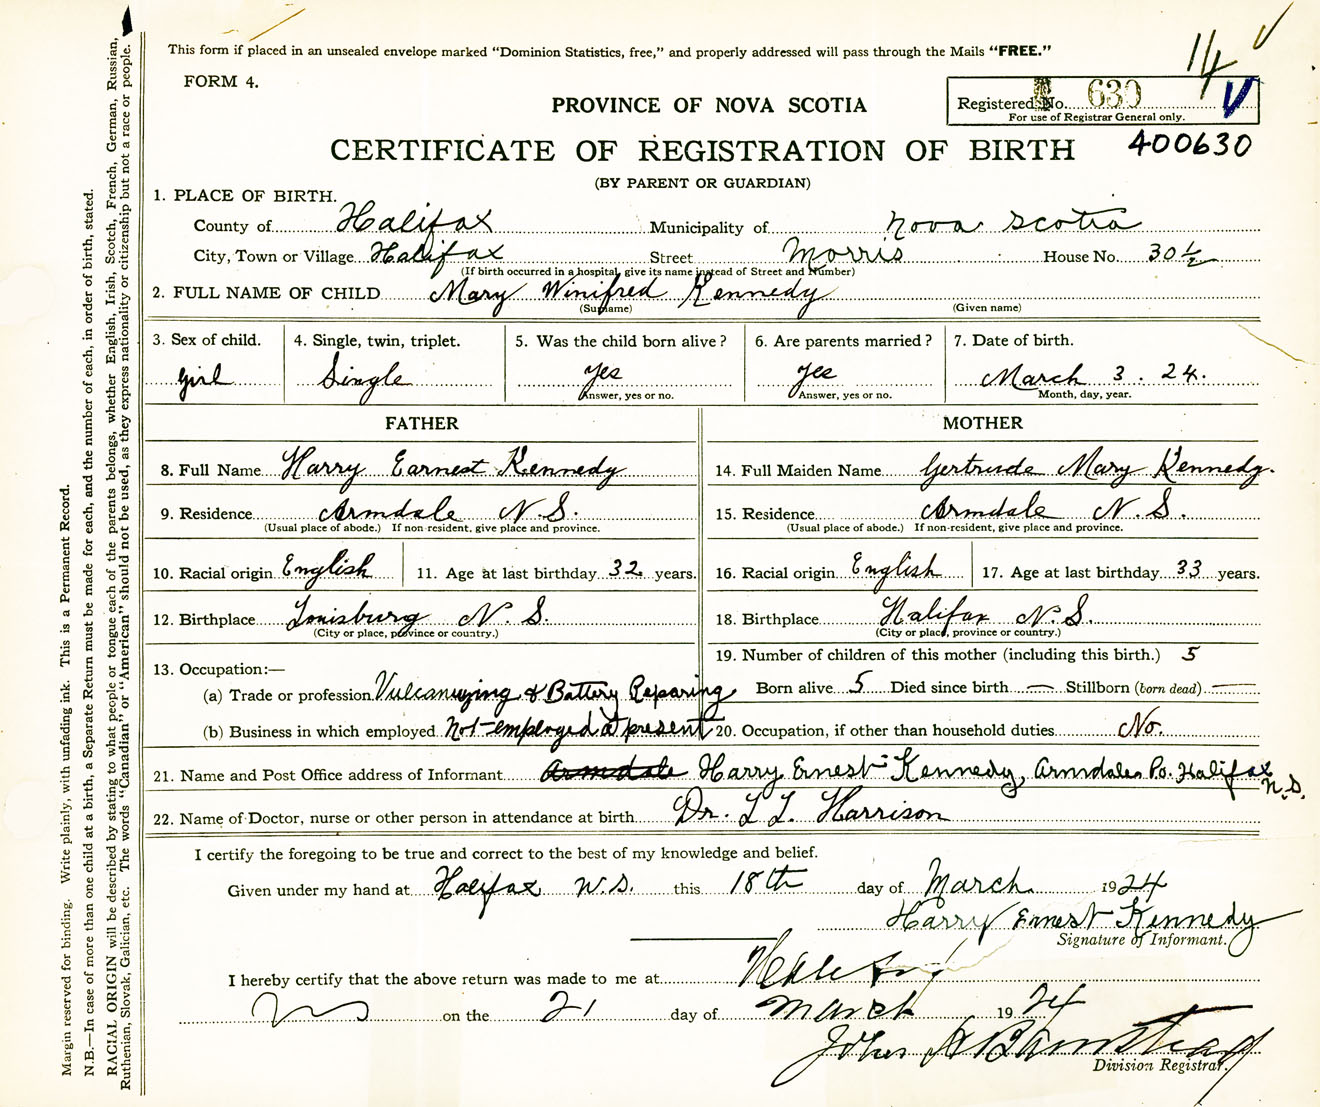 This form if placed in an unsealed envelope marked "Dominion Statistics, free," and properly addressed will pass through the Mails "FREE."
14 V
FORM 4.
Registered No. 630 V
For use of Registrar General only.
PROVINCE OF NOVA SCOTIA
400630
CERTIFICATE OF REGISTRATION OF BIRTH
(BY PARENT OR GUARDIAN)
1. PLACE OF BIRTH.
County of Halifax Municipality of Nova Scotia
City, Town or Village Halifax Street Morris House No. 30 ½
(If birth occurred in a hospital, give its name instead of Street and Number)
2. FULL NAME OF CHILD Mary Winifred Kennedy
(Surname) (Given name)
3. Sex of child. 4. Single, twin, triplet. 5. Was the child born alive? 6. Are parents married? 7. Date of birth.
girl Single Yes Yes March 3. 24.
Answer, yes or no. Answer, yes or no. Month, day, year.
FATHER MOTHER
8. Full Name Harry Earnest Kennedy 14. Full Maiden Name Gertrude Mary Kennedy.
9. Residence Armdale N.S. 15. Residence Armdale N.S.
(Usual place of abode.) If non-resident, give place and province. (Usual place of abode.) If non-resident, give place and province.
10. Racial origin English 11. Age at last birthday 32 years. 16. Racial origin English 17. Age at last birthday 33 years.
12. Birthplace Louisburg N.S. 18. Birthplace Halifax N.S.
(City or place, province or country.) (City or place, province or country.)
13. Occupation:— 19. Number of children of this mother (including this birth.) 5
(a) Trade or profession Vulcanizing & Battery Reparing Born alive 5 Died since birth — Stillborn (born dead) —
(b) Business in which employed Not employed at present 20. Occupation, if other than household duties No.
21. Name and Post Office address of Informant Armdale Harry Ernest Kennedy, Armdale Po. Halifax N.S.
22. Name of Doctor, nurse or other person in attendance at birth Dr. L L. Harrison
I certify the foregoing to be true and correct to the best of my knowledge and belief.
Given under my hand at Halifax N.S. this 18th day of March 1924
Harry Ernest Kennedy
Signature of Informant.
I hereby certify that the above return was made to me at
NS on the 21 day of March 1924
John A
Division Registrar.
Margin reserved for binding. Write plainly, with unfading ink. This is a Permanent Record.
N.B.—In case of more than one child at a birth, a Separate Return must be made for each, and the number of each, in order of birth, stated.
RACIAL ORIGIN will be described by stating to what people or tongue each of the parents belongs, whether English, Irish, Scotch, French, German, Russian,
Ruthenian, Slovak, Galician, etc. The words "Canadian" or "American" should not be used, as they express nationality or citizenship but not a race or people.